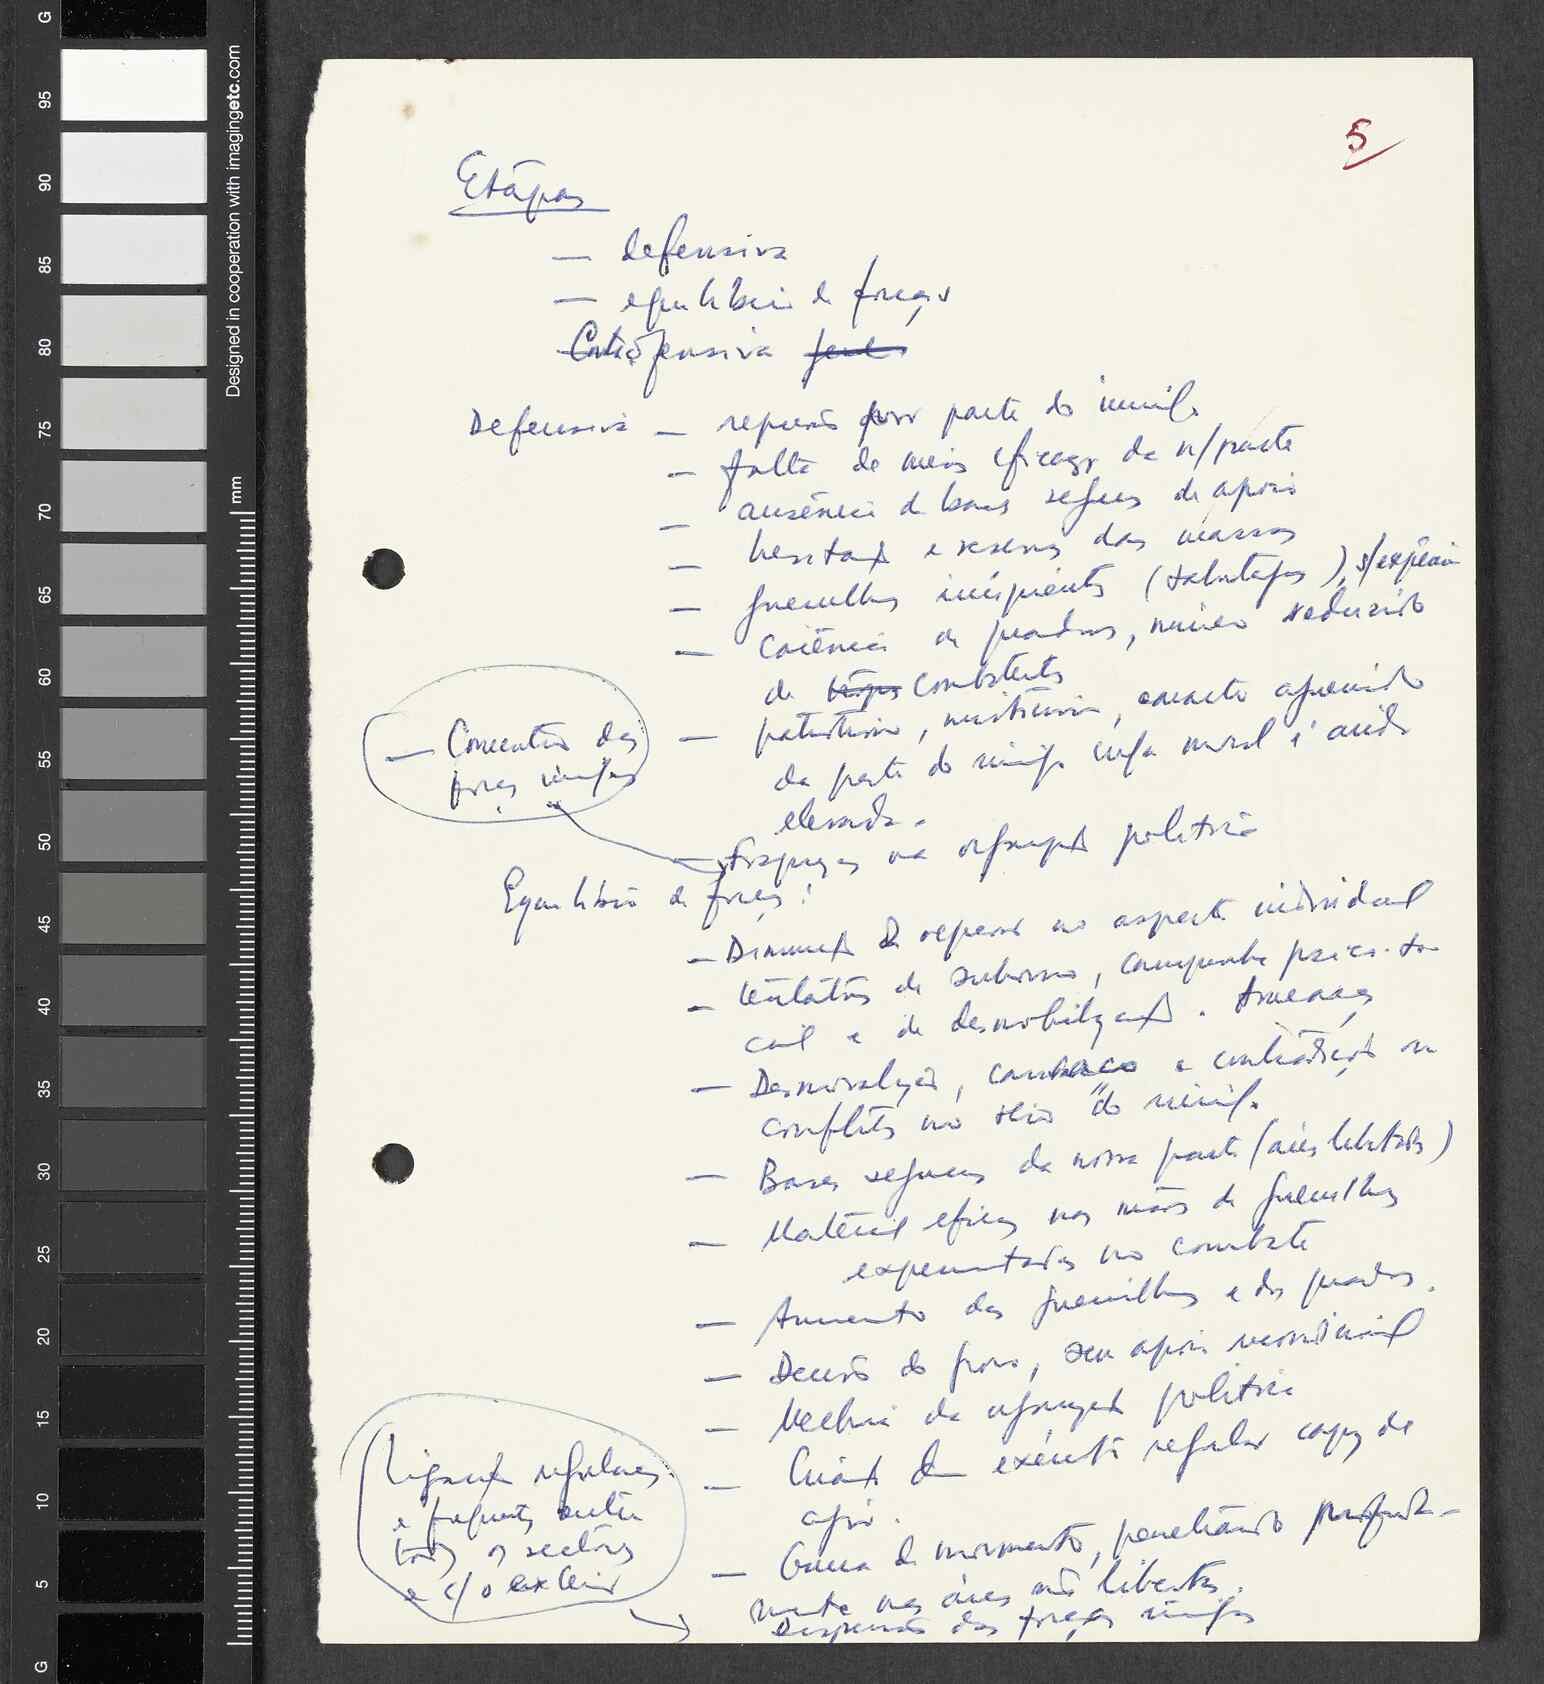 5
Etápas
— defensiva
— equilíbrio de forças
Controfensiva
Defensiva — repressão por parte do inimigo
— falta de meios eficazes da n/parte
— ausência de bases seguras de apoio
— hesitação e reservas das massas
— guerrilhas incipientes (sabotagens), s/experiência
— carência de quadros, número reduzido
de combatentes
— patriotismo, carácter aguerrido
da parte do inimigo cuja moral é ainda
elevada.
— Concentração das
forças inimigas
— Fraquezas na organização política
Equilíbrio de forças:
— Diminuição da repressão no aspecto individual
— tentativas de suborno, campanha psico-so-
cial e de desmobilização. Ameaças
— Desmoralização, cansaço e contradições ou
conflitos no seio do inimigo
— Bases seguras da nossa parte (áreas libertadas)
— Material eficaz nas mãos de guerrilhas
experimentadas no combate
— Aumento das guerrilhas e dos quadros.
— Decisão do povo, seu apoio incondicional
— Melhoria da organização política
— Criação dum exército regular capaz de
agir.
— Guerra de movimento, penetrando profunda-
mente nas áreas não libertas.
Dispersão das forças inimigas
Ligação regulares
e frequentes entre
todos os sectores
e c/o exterior